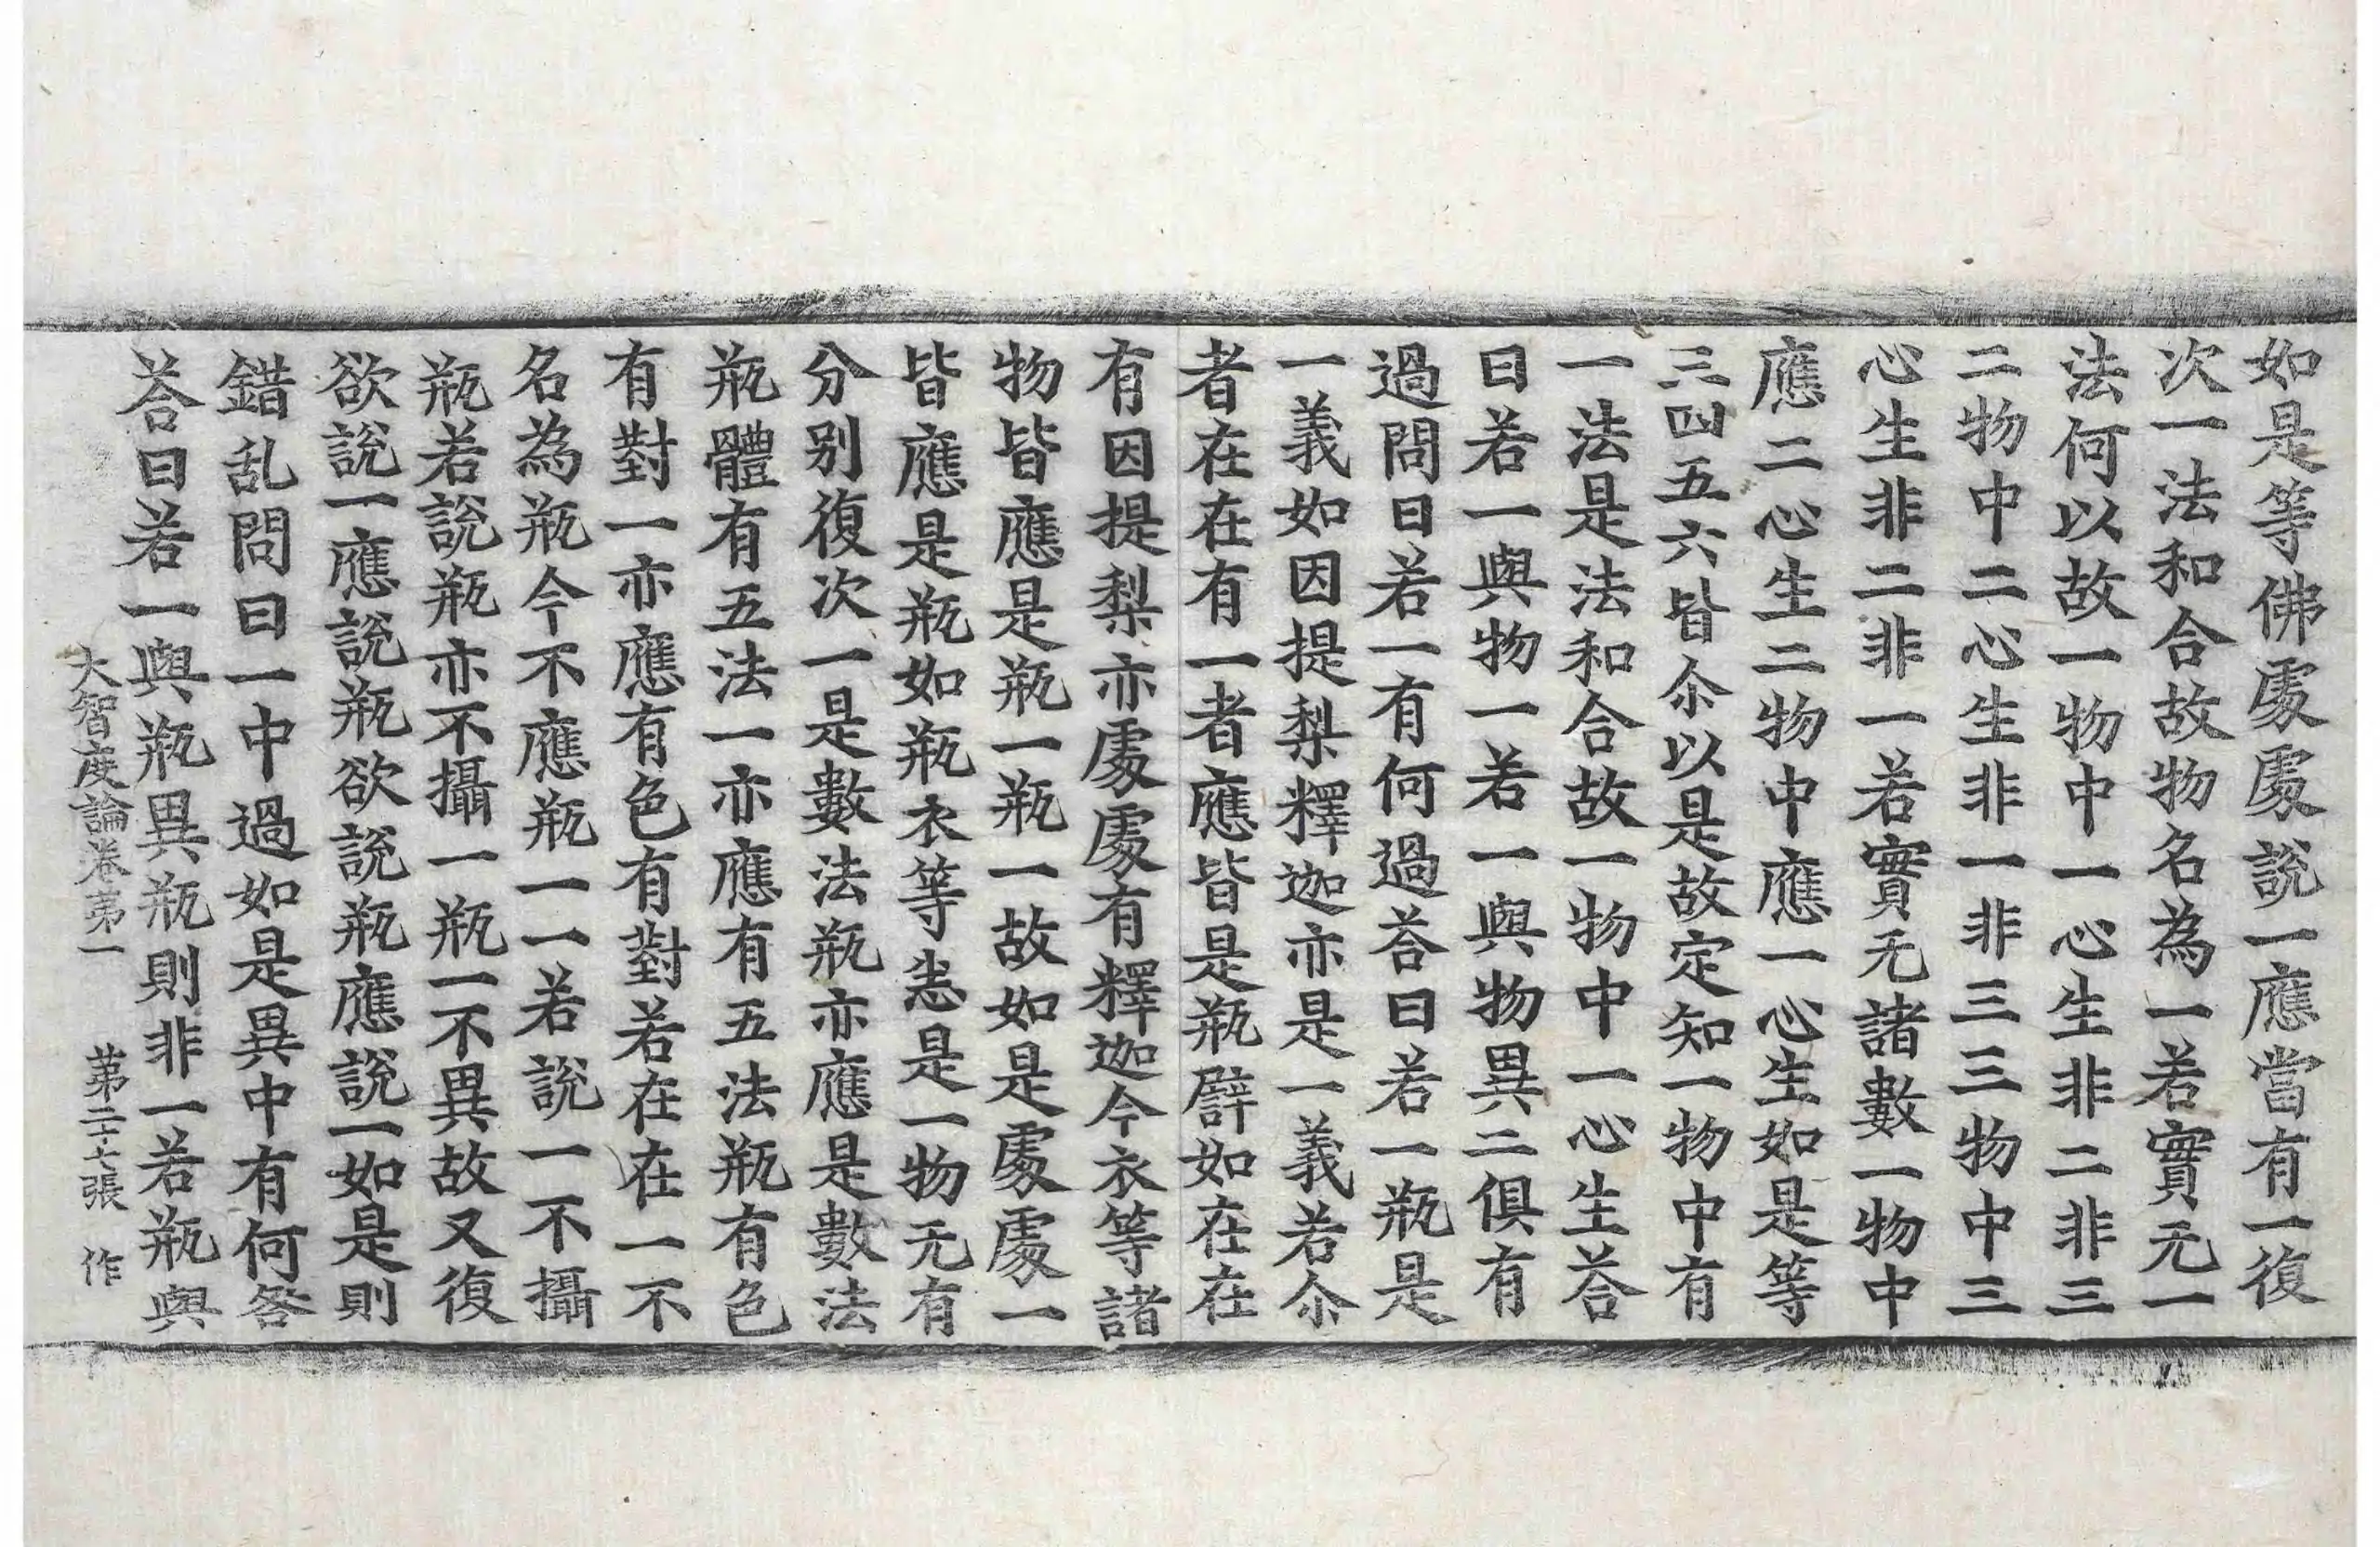 如是等佛處處說一應當有一復
次一法和合故物名為一若實无一
法何以故一物中一心生非二非三
二物中二心生非一非三三物中三
心生非二非一若實无諸數一物中
應二心生二物中應一心生如是等
三四五六皆尒以是故定知一物中有
一法是法和合故一物中一心生荅
曰若一與物一若一與物異二俱有
過問曰若一有何過荅曰若一瓶是
一義如因提梨釋迦亦是一義若尒
者在在有一者應皆是瓶譬如在在
有因提梨亦處處有釋迦今衣等諸
物皆應是瓶一瓶一故如是處處一
皆應是瓶如瓶衣等悉是一物无有
分別復次一是數法瓶亦應是數法
瓶體有五法一亦應有五法瓶有色
有對一亦應有色有對若在在一不
名為瓶今不應瓶一一若說一不攝
瓶若說瓶亦不攝一瓶一不異故又復
欲說一應說瓶欲說瓶應說一如是則
錯乱問曰一中過如是異中有何咎
荅曰若一與瓶異瓶則非一若瓶與
大智度論卷苐一 苐二十七張 作